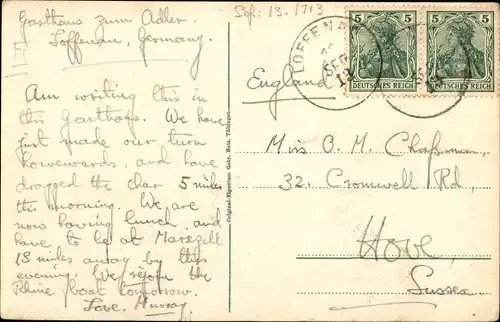 Gasthaus zum Adler
Loffenau, Germany.
Sep: 13. 1913
Am writing this in
this Gasthaus. We have
just made our turn
homewards, and have
dragged the char 5 miles
this morning. We are
now having lunch and
have to be at Marxzell
13 miles away by this
evening. We rejoin the
Rhine boat tomorrow.
Love, Murray.
Original-Eigentum Gebr. Metz, Tübingen.
LOFFENAU
SEP
5 5
DEUTSCHES REICH
5 5
DEUTSCHES REICH
England
Miss O. M. Chapman,
32. Cromwell Rd,
Hove,
Sussex